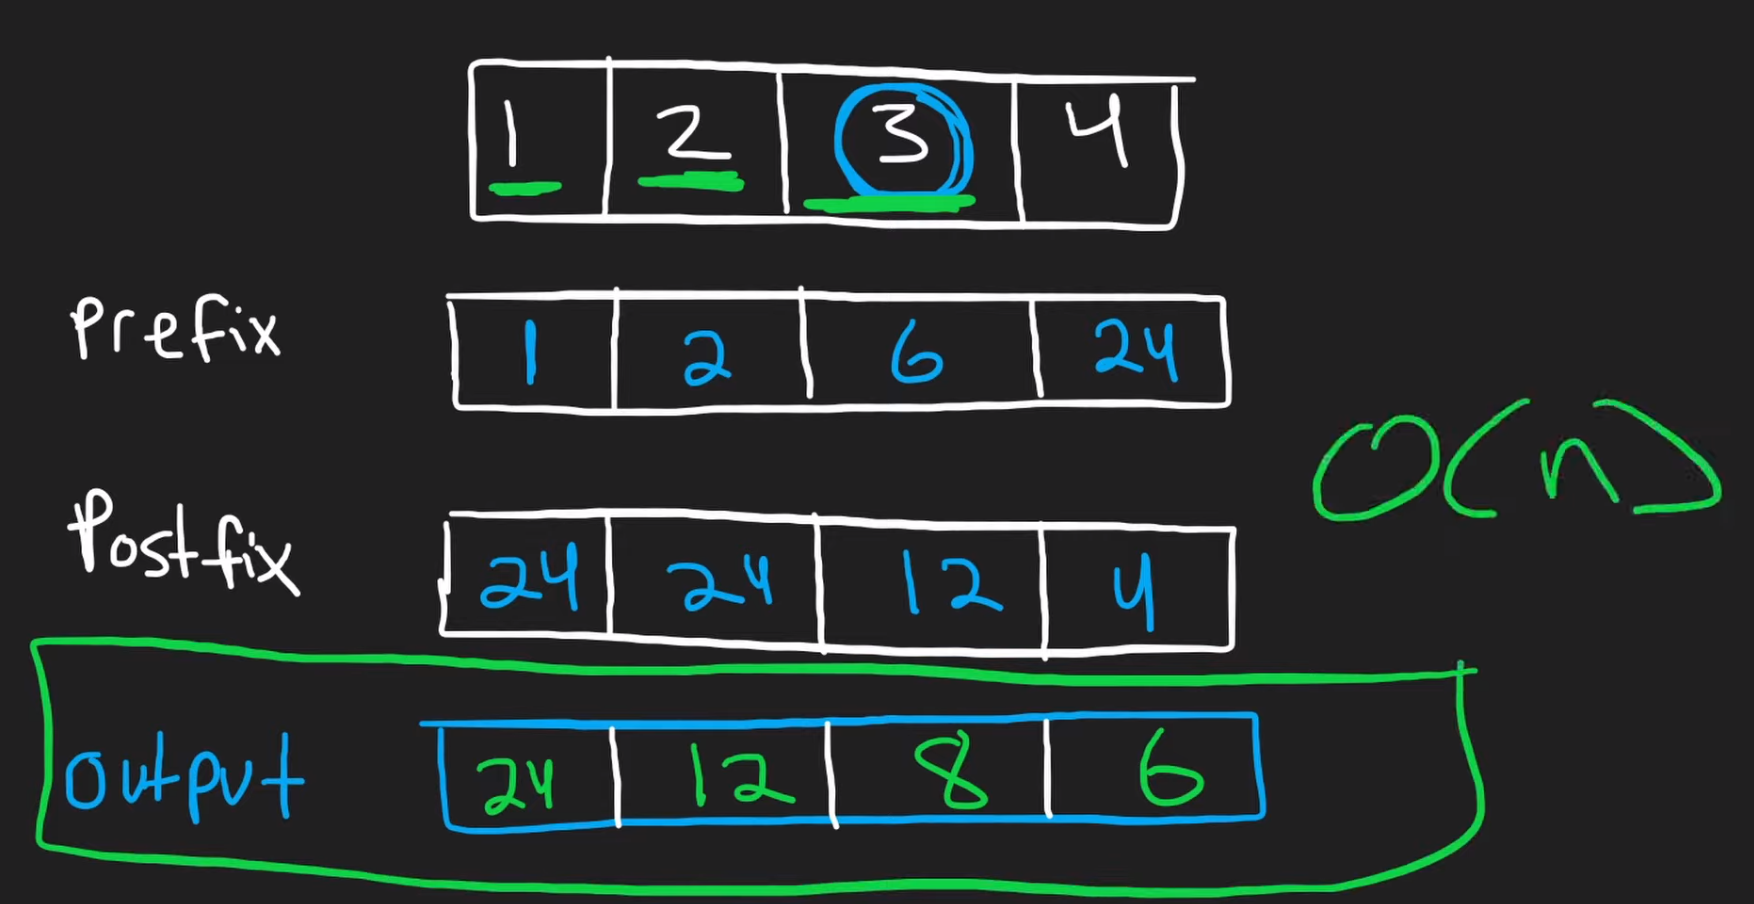 1 2 3 4
Prefix 1 2 6 24
O(n)
Postfix 24 24 12 4
Output 24 12 8 6